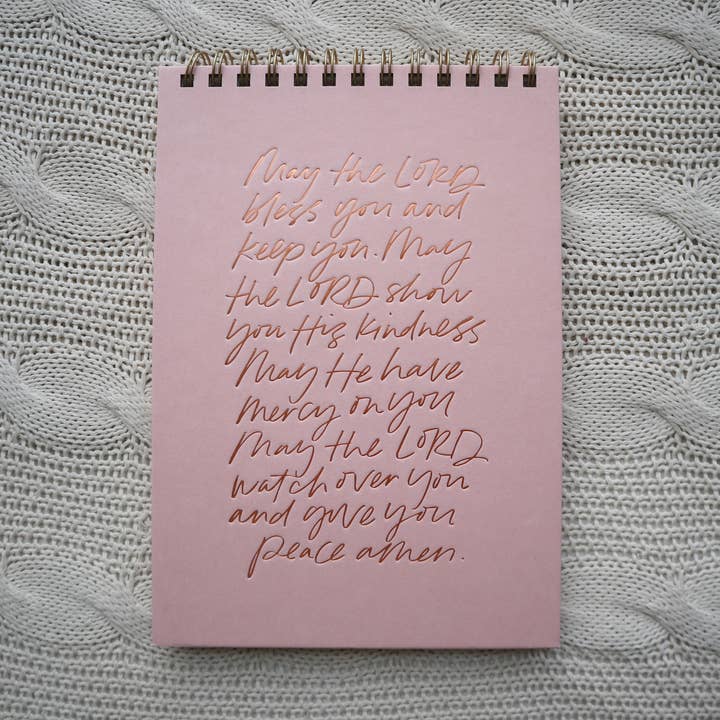 May the LORD
bless you and
keep you. May
the LORD show
you His kindness
May He have
mercy on you
May the LORD
watch over you
and give you
peace amen.